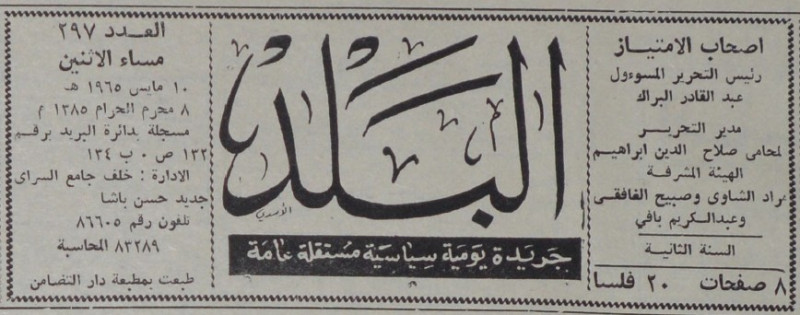 اصحاب الامتياز
رئيس التحرير المسوءول
عبد القادر البراك
مدير التحرير
لمحامى صلاح الدين ابراهيم
الهيئة المشرفة
مراد الشاوى وصبيح الغافقى
وعبدالكريم بافي
السنة الثانية
٨ صفحات ٢٠ فلسا
البلد
جريدة يومية سياسية مستقلة عامة
العدد ٢٩٧
مساء الاثنين
١٠ مايس ١٩٦٥ هـ
٨ محرم الحرام ١٣٨٥ م
مسجلة بدائرة البريد برقم
١٣٢ ص ٠ ب ١٣٤
الادارة : خلف جامع السراى
جديد حسن باشا
تلفون رقم ٨٦٦٠٥
٨٣٢٨٩ المحاسبة
طبعت بمطبعة دار التضامن